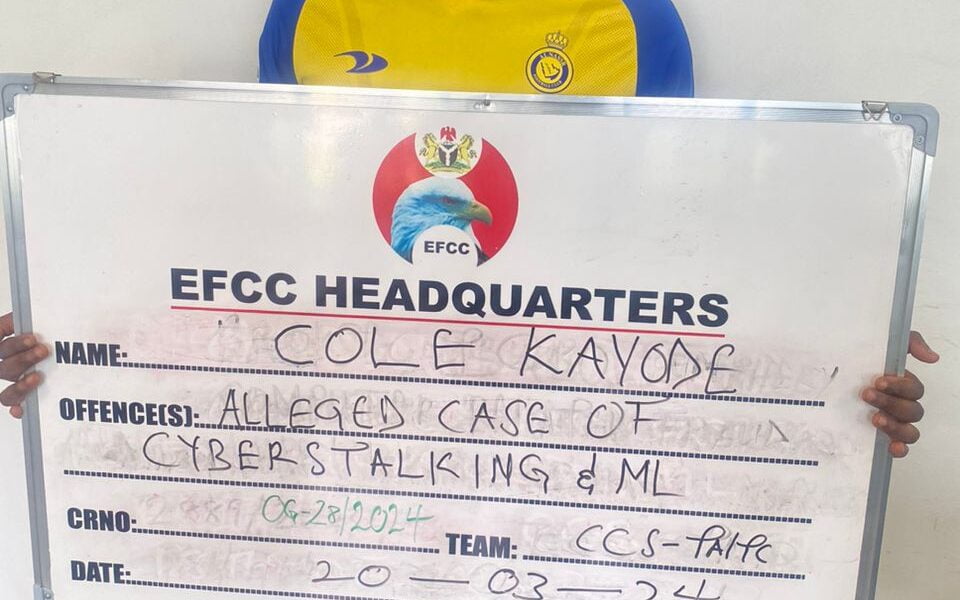 EFCC
EFCC HEADQUARTERS
NAME: COLE KAYODE
OFFENCE(S): ALLEGED CASE OF
CYBERSTALKING & ML
CRNO: OG-28/2024
TEAM: CCS-
DATE: 20 — 03 — 24